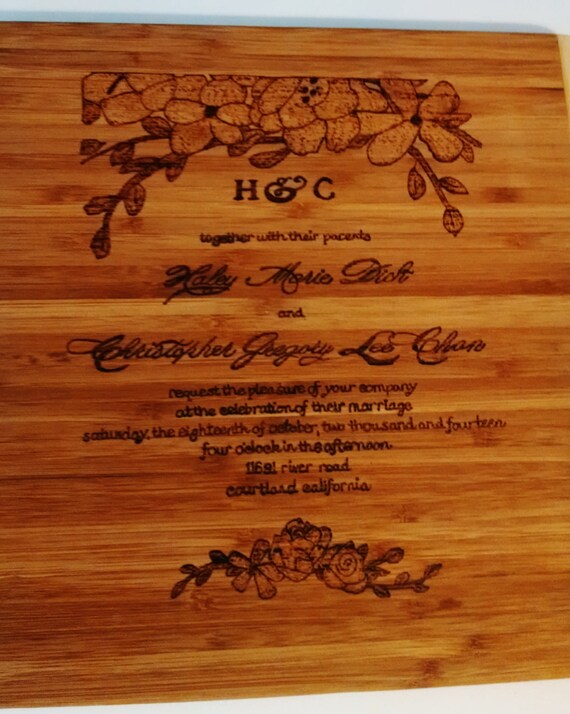 H & C
together with their parents
Haley Marie Dish
and
Christopher Gregory Lee Chan
request the pleasure of your company
at the celebration of their marriage
saturday, the eighteenth of october, two thousand and fourteen
four o'clock in the afternoon
11691 river road
courtland california